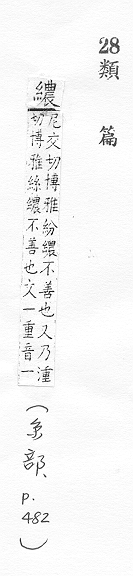 28 類篇
繷
尼交切博雅紛繷不善也又乃湩
切博雅絲繷不善也文一重音一
(糸部、p. 482)